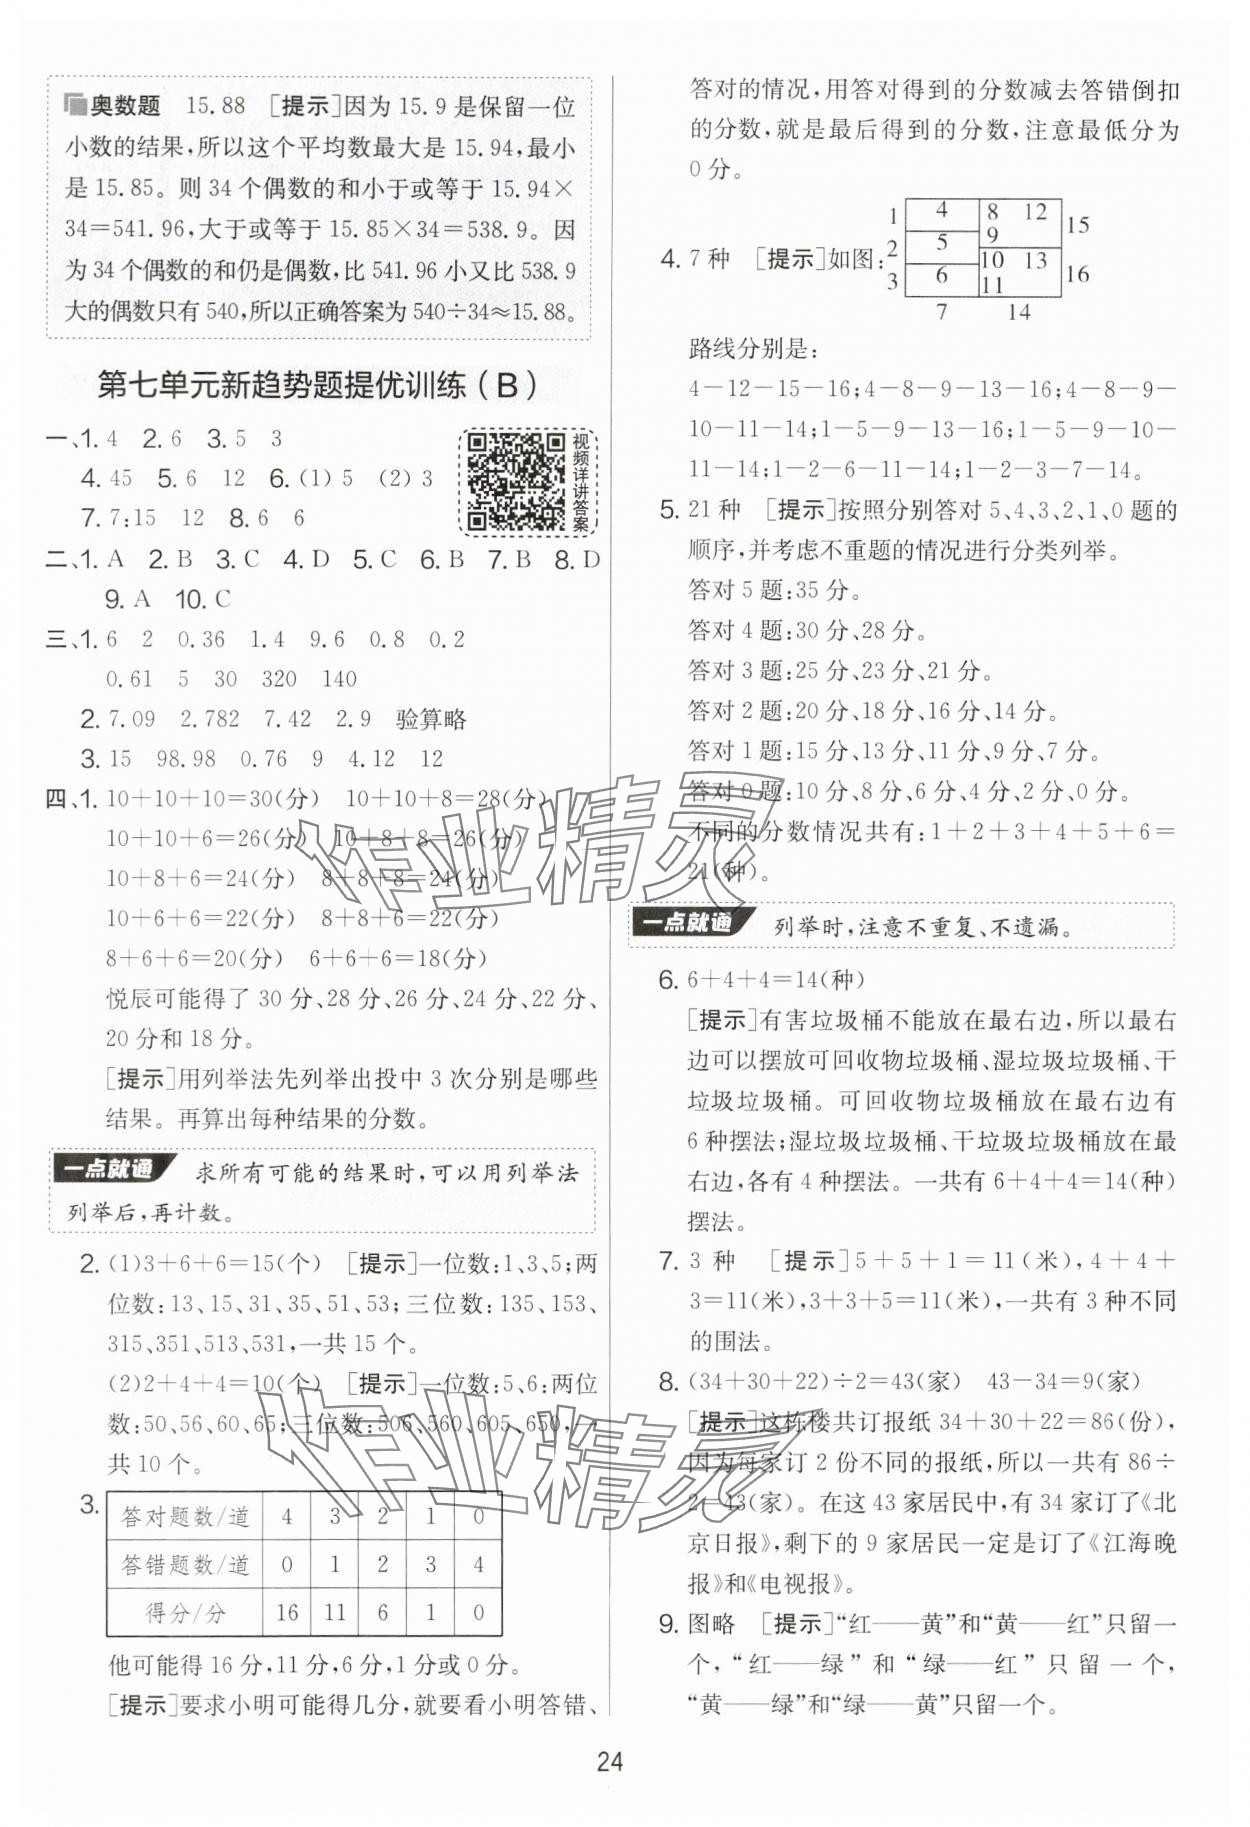 奥数题 15.88 [提示]因为 15.9 是保留一位
小数的结果,所以这个平均数最大是 15.94,最小
是 15.85。则 34 个偶数的和小于或等于 15.94×
34=541.96,大于或等于 15.85×34=538.9。因
为 34 个偶数的和仍是偶数,比 541.96 小又比 538.9
大的偶数只有 540,所以正确答案为 540÷34≈15.88。
第七单元新趋势题提优训练(B)
一、1. 4 2. 6 3. 5 3
4. 45 5. 6 12 6. (1) 5 (2) 3
7. 7:15 12 8. 6 6
视频详讲答案
二、1. A 2. B 3. C 4. D 5. C 6. B 7. B 8. D
9. A 10. C
三、1. 6 2 0.36 1.4 9.6 0.8 0.2
0.61 5 30 320 140
2. 7.09 2.782 7.42 2.9 验算略
3. 15 98.98 0.76 9 4.12 12
四、1. 10+10+10=30(分) 10+10+8=28(分)
10+10+6=26(分) 10+8+8=26(分)
10+8+6=24(分) 8+8+8=24(分)
10+6+6=22(分) 8+8+6=22(分)
8+6+6=20(分) 6+6+6=18(分)
悦辰可能得了 30 分、28 分、26 分、24 分、22 分、
20 分和 18 分。
[提示]用列举法先列举出投中 3 次分别是哪些
结果。再算出每种结果的分数。
一点就通 求所有可能的结果时,可以用列举法
列举后,再计数。
2. (1)3+6+6=15(个) [提示]一位数:1、3、5;两
位数:13、15、31、35、51、53;三位数:135、153、
315、351、513、531,一共 15 个。
(2)2+4+4=10(个) [提示]一位数:5、6;两位
数:50、56、60、65;三位数:506、560、605、650,一
共 10 个。
3. 答对题数/道 4 3 2 1 0
答错题数/道 0 1 2 3 4
得分/分 16 11 6 1 0
他可能得 16 分,11 分,6 分,1 分或 0 分。
[提示]要求小明可能得几分,就要看小明答错、
答对的情况,用答对得到的分数减去答错倒扣
的分数,就是最后得到的分数,注意最低分为
0 分。
4. 7 种 [提示]如图:
1 4 8 12 15
2 5 9
3 6 10 13 16
11
7 14
路线分别是:
4—12—15—16;4—8—9—13—16;4—8—9—
10—11—14;1—5—9—13—16;1—5—9—10—
11—14;1—2—6—11—14;1—2—3—7—14。
5. 21 种 [提示]按照分别答对 5、4、3、2、1、0 题的
顺序,并考虑不重题的情况进行分类列举。
答对 5 题:35 分。
答对 4 题:30 分、28 分。
答对 3 题:25 分、23 分、21 分。
答对 2 题:20 分、18 分、16 分、14 分。
答对 1 题:15 分、13 分、11 分、9 分、7 分。
答对 0 题:10 分、8 分、6 分、4 分、2 分、0 分。
不同的分数情况共有:1+2+3+4+5+6=
21(种)。
一点就通 列举时,注意不重复、不遗漏。
6. 6+4+4=14(种)
[提示]有害垃圾桶不能放在最右边,所以最右
边可以摆放可回收物垃圾桶、湿垃圾垃圾桶、干
垃圾垃圾桶。可回收物垃圾桶放在最右边有
6 种摆法;湿垃圾垃圾桶、干垃圾垃圾桶放在最
右边,各有 4 种摆法。一共有 6+4+4=14(种)
摆法。
7. 3 种 [提示]5+5+1=11(米),4+4+
3=11(米),3+3+5=11(米),一共有 3 种不同
的围法。
8. (34+30+22)÷2=43(家) 43-34=9(家)
[提示]这栋楼共订报纸 34+30+22=86(份),
因为每家订 2 份不同的报纸,所以一共有 86÷
2=43(家)。在这 43 家居民中,有 34 家订了《北
京日报》,剩下的 9 家居民一定是订了《江海晚
报》和《电视报》。
9. 图略 [提示]“红——黄”和“黄——红”只留一
个,“红——绿”和“绿——红”只留一个,
“黄——绿”和“绿——黄”只留一个。
24
作业精灵
作业精灵